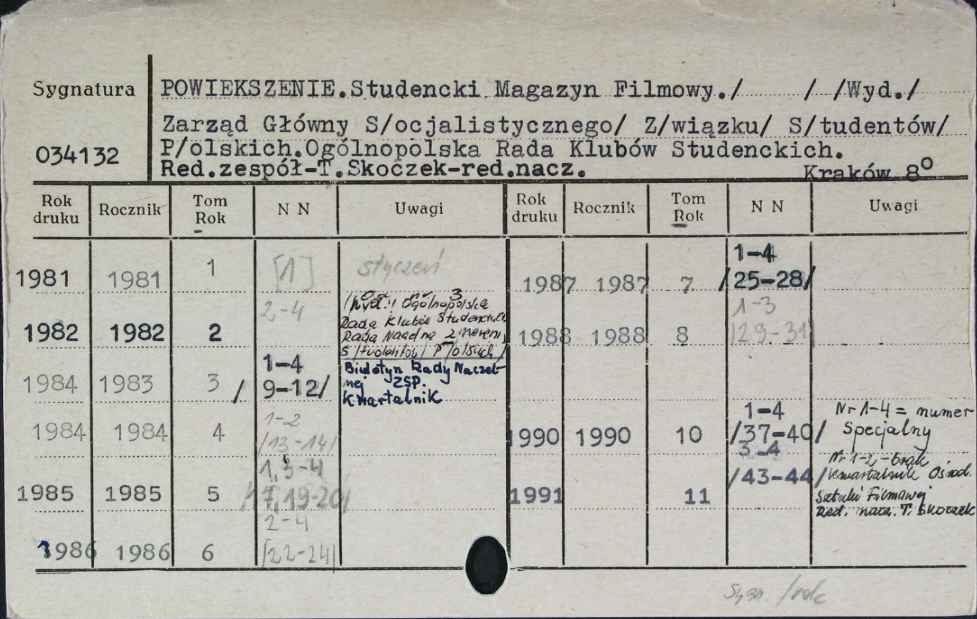 Sygnatura
034132
POWIEKSZENIE.Studencki Magazyn Filmowy./ / /Wyd./
Zarząd Główny S/ocjalistycznego/ Z/wiązku/ S/tudentów/
P/olskich.Ogólnopolska Rada Klubów Studenckich.
Red.zespół-T.Skoczek-red.nacz. Kraków 8°
Rok druku Rocznik Tom Rok N N Uwagi Rok druku Rocznik Tom Rok N N Uwagi
1981 1981 1 [1] styczeń
1982 1982 2 2-4
Ogólnopolska
Rada Klubów
Rada
Biuletyn Rady Naczel-
nej ZSP.
Kwartalnik
1984 1983 3 1-4 /9-12/
1984 1984 4 1-2 /13-14/
1985 1985 5 1,3-4 /17,19-20/
1986 1986 6 2-4 /22-24/
1987 1987 7 1-4 /25-28/
1988 1988 8 1-3 /29-31/
1990 1990 10 1-4 /37-40/ Nr 1-4 = numer
Specjalny
1991 11 3-4 /43-44/ Nr 1-2,-brak
/kwartalnik Ośrod.
Sztuki Filmowej
Red. nacz. T. Skoczek